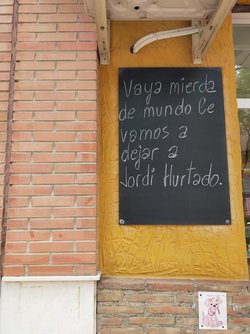 Vaya mierda
de mundo le
vamos a
dejar a
Jordi Hurtado.